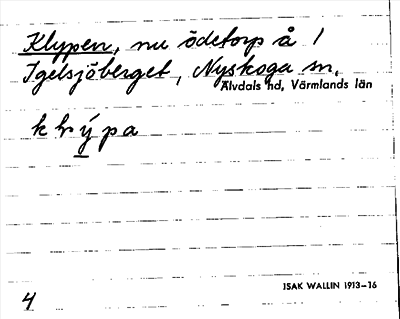 Klypen, nu ödetorp å /
Igelsjöberget, Nyskoga sn,
Älvdals hd, Värmlands län
ISAK WALLIN 1913–16
4